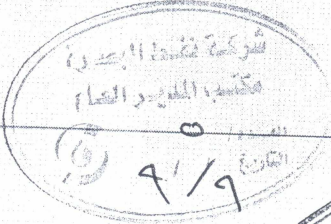 شركة نفط البصرة
مكتب المدير العام
العدد /
التاريخ
٩ / ٩